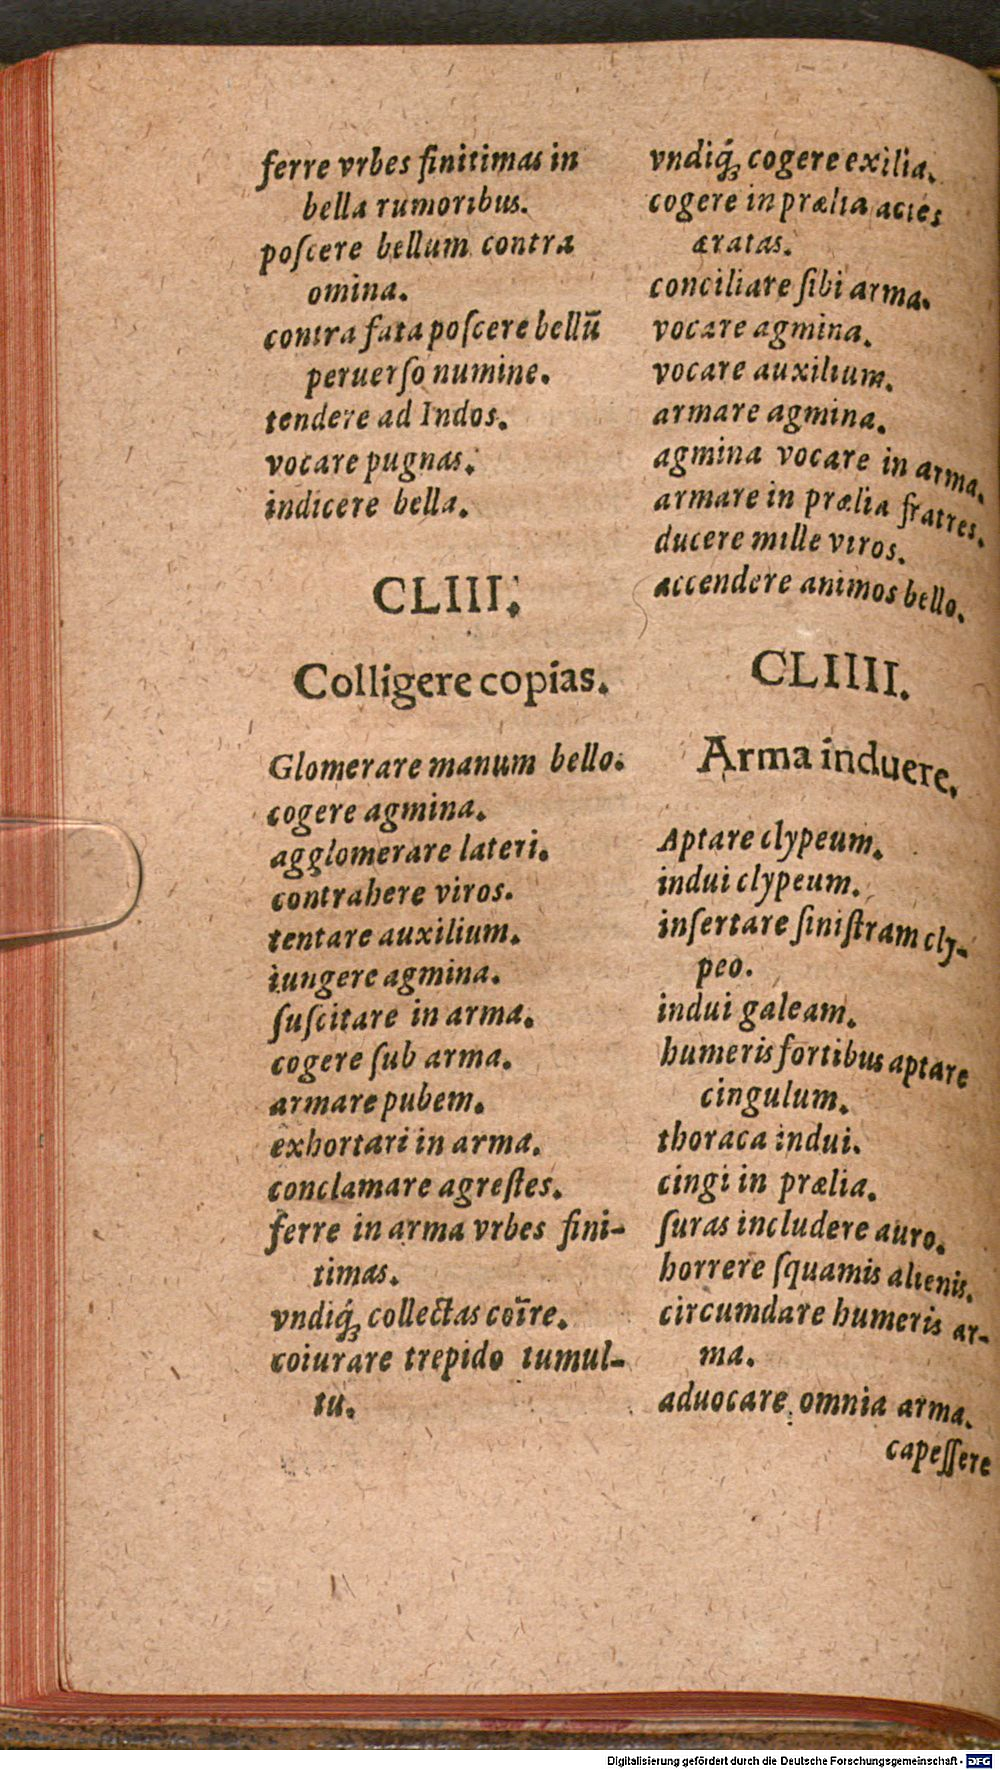 ferre vrbes finitimas in
bella rumoribus.
poſcere bellum contra
omina.
contra fata poſcere bellū
peruerſo numine.
tendere ad Indos.
vocare pugnas.
indicere bella.
CLIII.
Colligere copias.
Glomerare manum bello.
cogere agmina.
agglomerare lateri.
contrahere viros.
tentare auxilium.
iungere agmina.
ſuſcitare in arma.
cogere ſub arma.
armare pubem.
exhortari in arma.
conclamare agreſtes.
ferre in arma vrbes fini-
timas.
vndiq́ꝫ collectas coīre.
coiurare trepido tumul-
tu.
vndiq́ꝫ cogere exilia.
cogere in prælia acies
æratas.
conciliare ſibi arma.
vocare agmina.
vocare auxilium.
armare agmina.
agmina vocare in arma.
armare in prælia fratres.
ducere mille viros.
accendere animos bello.
CLIIII.
Arma induere.
Aptare clypeum.
indui clypeum.
inſertare ſiniſtram cly-
peo.
indui galeam.
humeris fortibus aptare
cingulum.
thoraca indui.
cingi in prælia.
ſuras includere auro.
horrere ſquamis alienis.
circumdare humeris ar-
ma.
aduocare omnia arma.
capeſſere
Digitalisierung gefördert durch die Deutsche Forschungsgemeinschaft - DFG